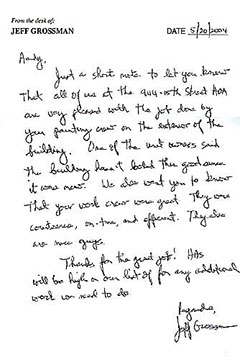 From the desk of:
JEFF GROSSMAN
DATE 5/20/2004
Andy,
Just a short note to let you know
that all of us at the 944-20th Street HOA
are very pleased with the job done by
your painting crew on the exterior of the
building. One of the unit owners said
the building hasn't looked this good since
it was new. We also want you to know
that your work crew were great. They were
courteous, on-time, and efficient. They also
are nice guys.
Thanks for the great job! HAS
will be high on our list of for any additional
work we need to do.
Regards,
Jeff Grossman